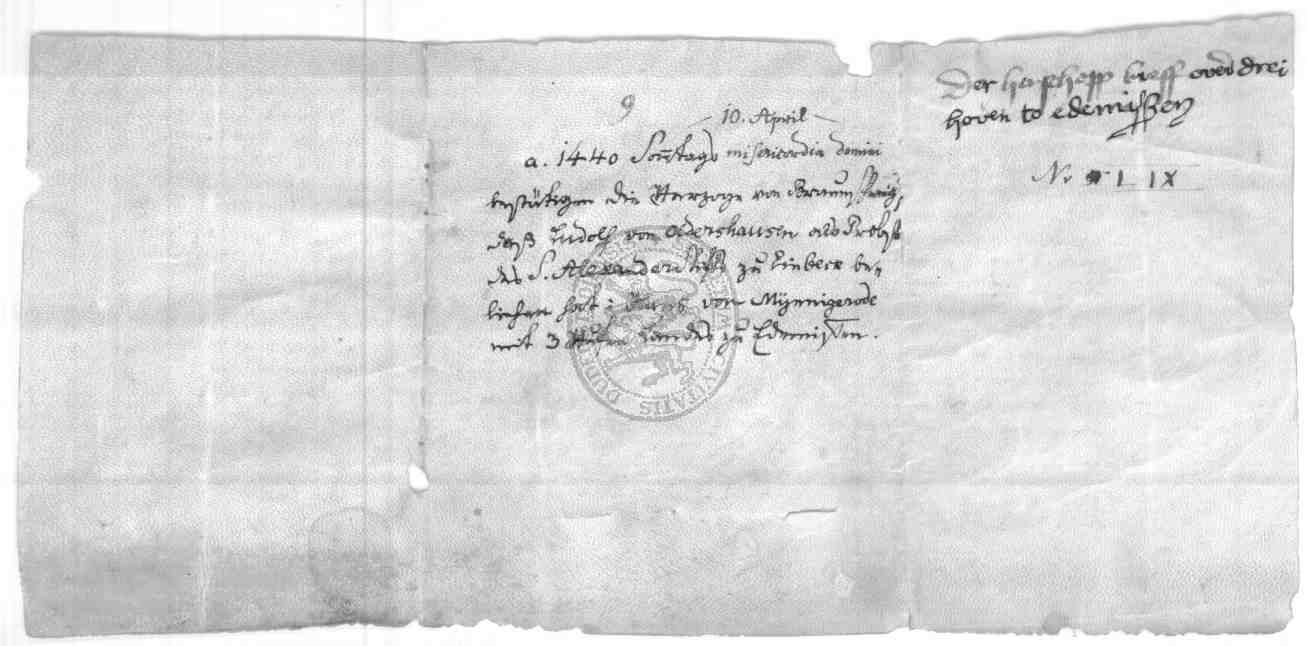 9
10. April
a. 1440 Sonntags misericordia domini
bestätigen die Herzoge von Braunschweig,
daß Ludolf von Oldershausen als Probst
des S. Alexanderstifts zu Einbeck be-
liehen hat: von Mynnigerode
mit 3 Hufen Landes zu Edemissen.
CIVITATIS
Der breff over drei
hoven to edemissen
No 1 IX